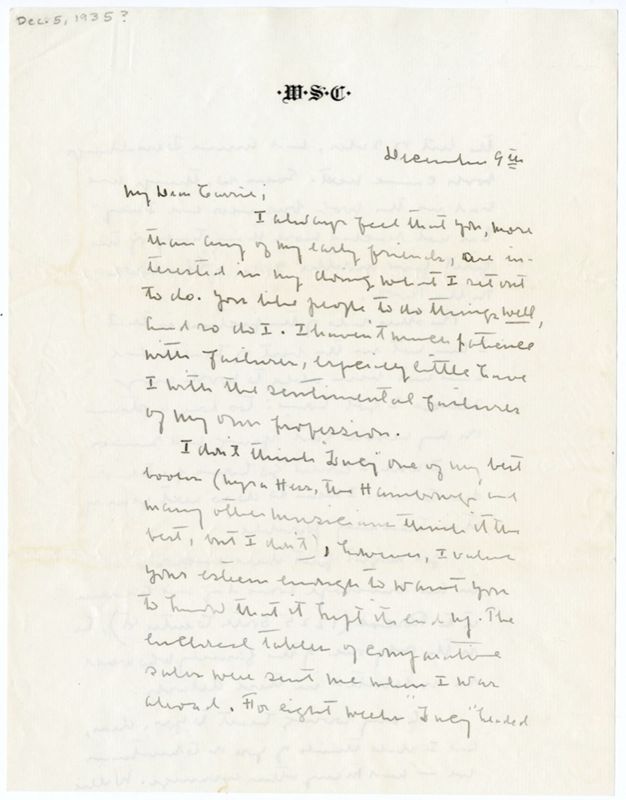 Dec. 5, 1935?
·W·S·C·
December 9th
My Dear Carrie;
I always feel that you, more
than any of my early friends, are in-
terested in my doing what I set out
to do. You like people to do things well,
and so do I. I haven't much patience
with failures, especialy little have
I with the sentimental failures
of my own profession.
I don't think "Lucy" one of my best
books (Myra Hess, the Hambourgs and
many other musicians think it the
best, but I don't), however, I value
your esteem enough to want you
to know that it kept its end up. The
enclosed tables of comparative
sales were sent me when I was
abroad. For eight weeks "Lucy" headed